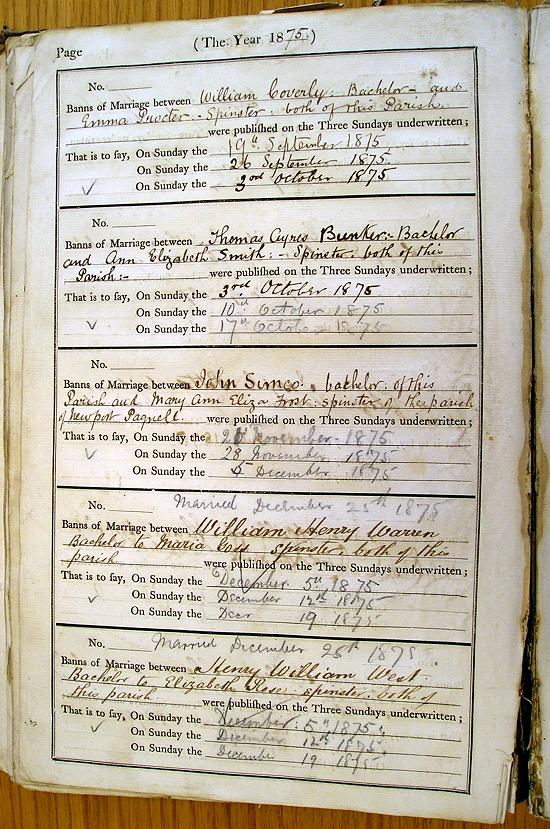 Page
(The Year 1875.)
No.
Banns of Marriage between William Coverly: Bachelor - and
Emma Procter - Spinster: both of this Parish.
were published on the Three Sundays underwritten;
That is to say, On Sunday the 19th September 1875
On Sunday the 26 September 1875.
On Sunday the 3rd October 1875
No.
Banns of Marriage between Thomas Ayres Bunker:- Bachelor
and Ann Elizabeth Smith:- Spinster: both of this
Parish:- were published on the Three Sundays underwritten;
That is to say, On Sunday the 3rd October 1875
On Sunday the 10th October 1875
On Sunday the 17th October 1875
No.
Banns of Marriage between John Simco. bachelor: of this
Parish and Mary Ann Eliza Frost: spinster of the parish
of Newport Pagnell. were published on the Three Sundays underwritten;
That is to say, On Sunday the 21 November - 1875
On Sunday the 28 November 1875
On Sunday the 5 December 1875
No. Married December 25th 1875
Banns of Marriage between William Henry Warren
Bachelor to Maria spinster both of this
parish were published on the Three Sundays underwritten;
That is to say, On Sunday the December 5th 1875
On Sunday the December 12th 1875
On Sunday the Decr 19 1875
No. Married December 25th 1875.
Banns of Marriage between Henry William West
Bachelor to Elizabeth Rose spinster both of
this parish were published on the Three Sundays underwritten;
That is to say, On Sunday the December: 5th 1875.
On Sunday the December 12th 1875
On Sunday the December 19 1875